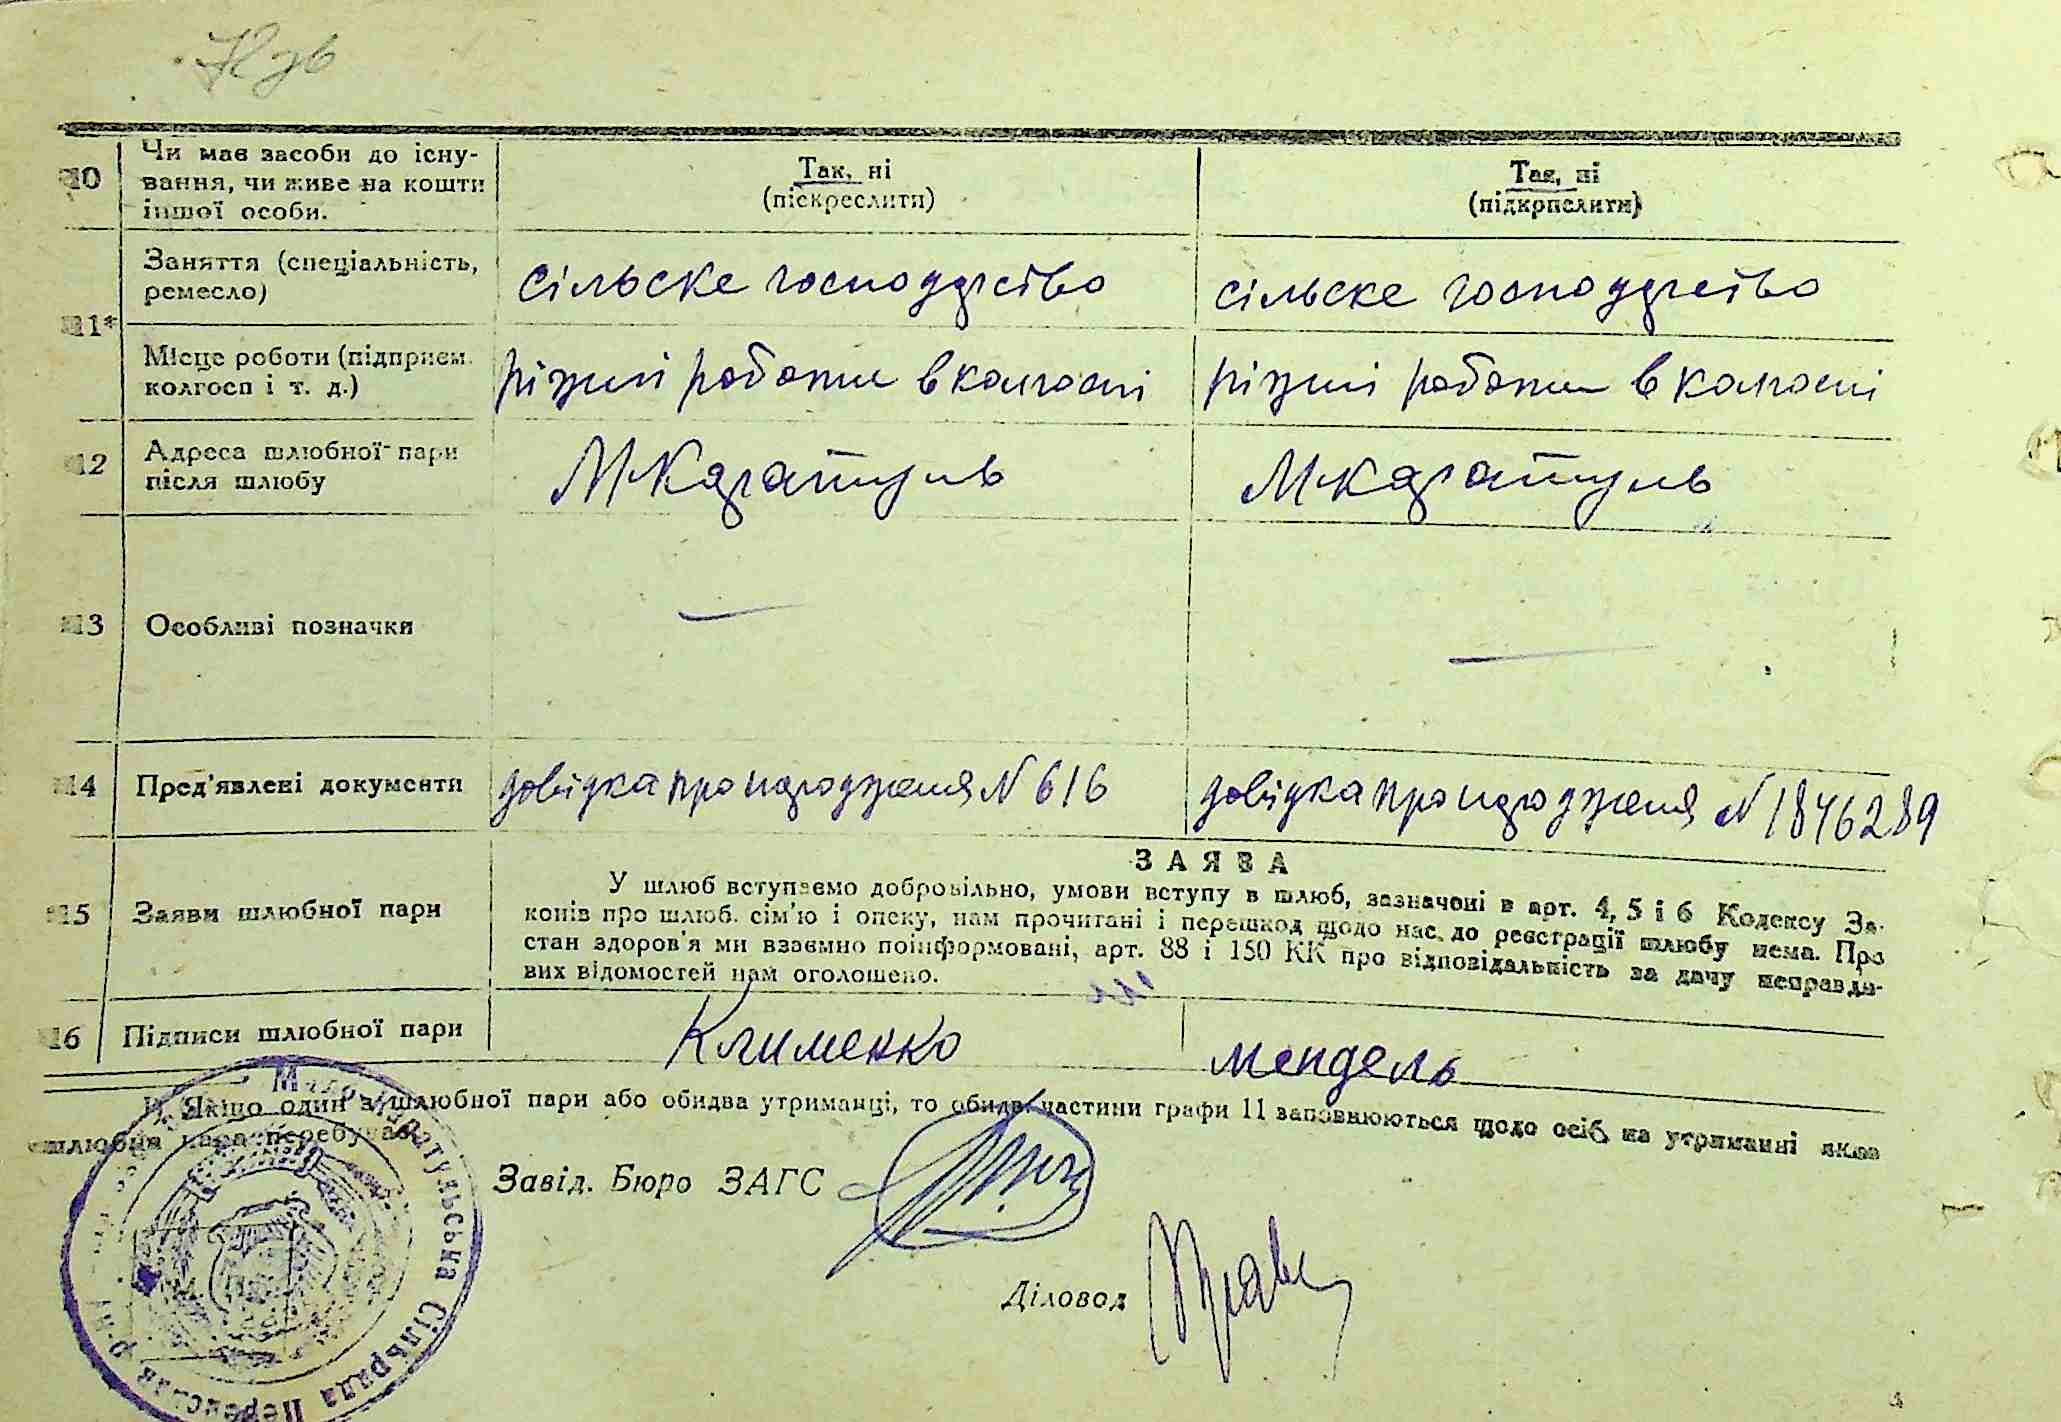 10 Чи має засоби до існу-
вання, чи живе на кошти
іншої особи.
Так, ні
(піскреслити)
Так, ні
(підкрпслити)
11* Заняття (спеціальність,
ремесло)
сільске господарство
сільске господарство
Місце роботи (підприєм.
колгосп і т. д.)
різні роботи в колгоспі
різні роботи в колгоспі
12 Адреса шлюбної пари
після шлюбу
МКаратуль
МКаратуль
13 Особливі позначки
—
—
14 Пред'явлені документи
довідка про народженя N 616
довідка про народженя N 1846289
15 Заяви шлюбної пари
ЗАЯВА
У шлюб вступаємо добровільно, умови вступу в шлюб, зазначені в арт. 4, 5 і 6 Кодексу За-
конів про шлюб. сім'ю і опеку, нам прочитані і перешкод щодо нас до реєстрації шлюбу нема. Про
стан здоров'я ми взаємно поінформовані, арт. 88 і 150 КК про відповідальність за дачу неправди-
вих відомостей нам оголошено.
16 Підписи шлюбної пари
Клименко
мендель
Якщо один з шлюбної пари або обидва утриманці, то обидві частини графи 11 заповнюються щодо осіб, на утриманні яких
шлюбна пара перебуває.
Завід. Бюро ЗАГС
Діловод
Мало-Каратульська Сільрада Переяслав
р-ну